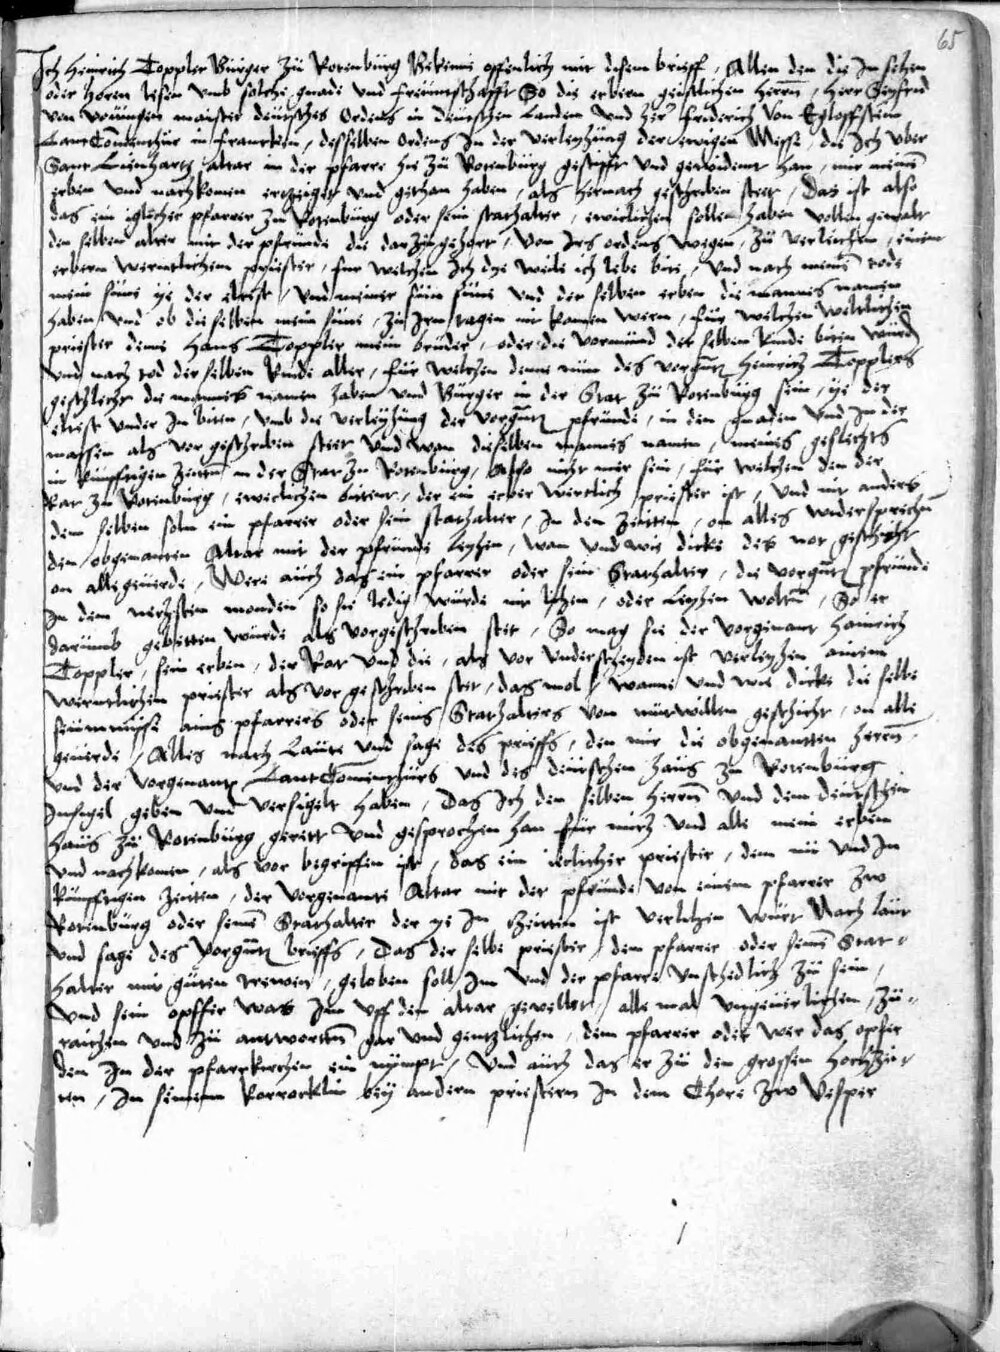 65
Ich Heinrich Toppler Burger zu Rotenburg Bekenne offenlich mit disem brieff, Allen den die In sehen
oder horen lesen umb solche gnade und freuntschafft So die erbern geistlichen herrn, herr Seyfrid
von Veningen maister deutsches Ordens in Deutschen Landen und her friderich von Egloffstein
Lant Comenthur in francken, desselben ordens In der verleyhung der ewigen Messe, die Ich uber
Sant Lienhartz altar in der pfarre hie zu Rotenburg gestifft und gewidemt han, mir meinen
erben und nachkomen ertzeiget und gethan haben, als hernach geschriben stett, Das ist also
das ein iglicher pfarrer zu Rotenburg oder sein stathalter, ewiclichen sollen haben vollen gewalt
den selben alter mit der pfrunde die darzu gehort, von Irs ordens wegen, zu verleihen, einem
erbern werntlichem priester, fur welchen Ich dye weile ich lebe bite, und nach meinem tode
mein sune ye der eltest, und meiner sun sune und der selben erben die mannes namen
haben und ob die selben mein sune, zu Irn tagen nit komen wern, fur welchen weltlichen
priester denne Hans Toppler mein bruder, oder die vormund der selben kinde biten wurd
und nach tod der selben kinde aller, fur welchen denne nun des vorgnt Heinrich Topplers
geschlecht die mannes namen haben und Burger in der Stat zu Rotenburg sein, ye der
eltest under In biten, umb die verleyhung der vorgnt pfrunde, in den gnaden und In der
massen als vor geschriben stett Und wan dieselben mannes namen, meines geslechts
in kunfftigen zeiten in der Stat zu Rotenburg, also nicht mer sein, fur welchen den der
Rat zu Rotenburg, ewiclichen bittent, der ein erber werltlich priester ist, Und nit anders
dem selben soln ein pfarrer oder sein stathalter, In den Zeitten, on alles widersprechen
den obgenanten Altar mit der pfrunde leyhen, wan und wie dicke des not geschicht
on alle geuerde, Were auch das ein pfarrer oder sein Stathalter, die vorgnt pfrunde
In dem nechsten monden so sie ledig wurde nit lihen, oder Leyhen wolten, So er
darumb gebetten wurde als vorgeschriben stet, So mag sie der vorgenant Heinrich
Toppler, sein erben, der Rat und die, als vor underscheyden ist verleyhen einem
werntlichem priester als vor geschriben stet, das mol, wann und wie dicke die selbe
seumnusse eins pfarrers oder seins Stathalters von mutwillen geschicht, on alle
geuerde, Alles nach Laute und sage des prieffs, den mir die obgenanten herrn,
und der vorgenant LantComenthurs und des deutschen haus zu Rotenburg
Insigel geben und versigelt haben, Das Ich den selben herrn und dem deutschen
haus zu Rotenburg gerett und gesprochen han fur mich und alle mein erben
und nachkomen, als vor begriffen ist, das ein ieclicher priester, dem nu und In
kunfftigen zeiten, der vorgenante Altar mit der pfrunde von einem pfarrer zw
Rotenburg oder seinem Stathalter der ye In Zeitten ist verlihen wurt Nach laut
und sage des vorgnt brieffs, Das der selbe priester, dem pfarrer oder seinem Stat-
halter mit guten trewen, geloben soll, Im und der pfarre unschedlich zu sein,
und sein opffer was Im uff den altar gevellet, alle mal ungeuerlichen, zu-
raichen und zu antworten gar und gentzlichen, dem pfarrer oder wer das opfer
den In der pfarrkirchen ein nympt, Und auch das er zu den grossen hochzei-
ten, In seinem korrocklin bey andern priestern In dem Chore zw Vesper